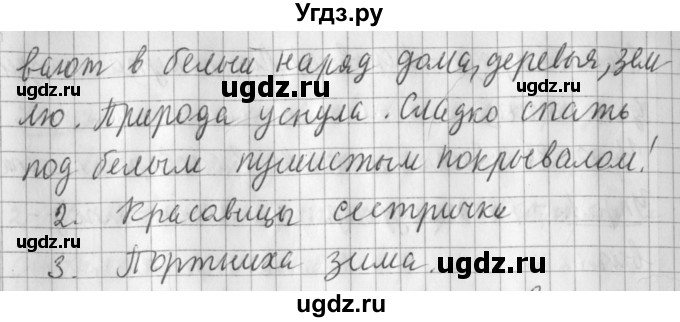 Угдз.ру
вают в белый наряд дома, деревья, зем-
лю. Природа уснула. Сладко спать
под белым пушистым покрывалом!
2. Красавицы сестрички
3. Портниха зима.
ugdz.ru
ugdz.ru
ugdz.ru
ugdz.ru
ugdz.ru
ugdz.ru
ugdz.ru
ugdz.ru